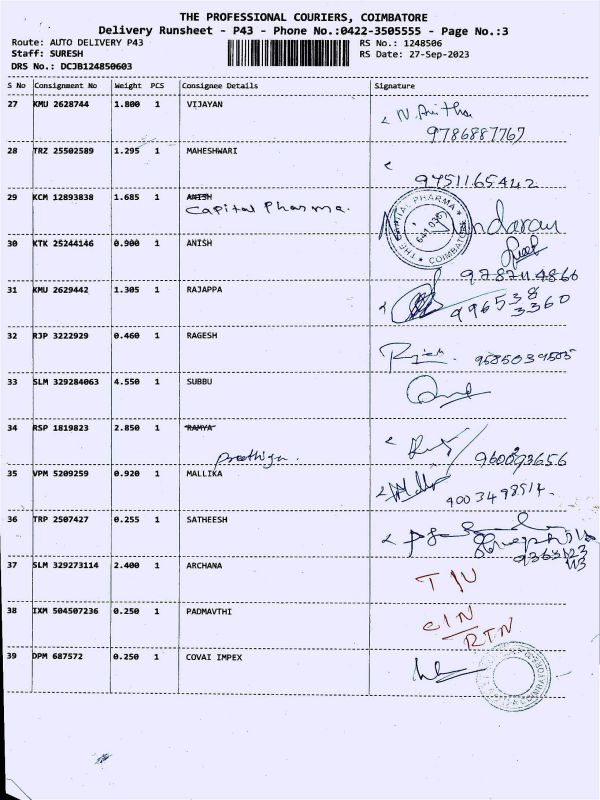 THE PROFESSIONAL COURIERS, COIMBATORE
Delivery Runsheet - P43 - Phone No.:0422-3505555 - Page No.:3
Route: AUTO DELIVERY P43 RS No.: 1248506
Staff: SURESH RS Date: 27-Sep-2023
DRS No.: DCJB124850603
S No Consignment No Weight PCS Consignee Details Signature
27 KMU 2628744 1.800 1 VIJAYAN
9786887767
28 TRZ 25502589 1.295 1 MAHESHWARI
9751165442
29 KCM 12893838 1.685 1 ANISH
Capital Pharma.
THE CAPITAL PHARMA COIMBATORE
30 KTK 25244146 0.900 1 ANISH
31 KMU 2629442 1.305 1 RAJAPPA
996538
3360
32 RJP 3222929 0.460 1 RAGESH
33 SLM 329284063 4.550 1 SUBBU
34 RSP 1819823 2.850 1 RAMYA
35 VPM 5209259 0.920 1 MALLIKA
36 TRP 2507427 0.255 1 SATHEESH
37 SLM 329273114 2.400 1 ARCHANA
38 IXM 504507236 0.250 1 PADMAVTHI
RTN
39 DPM 687572 0.250 1 COVAI IMPEX